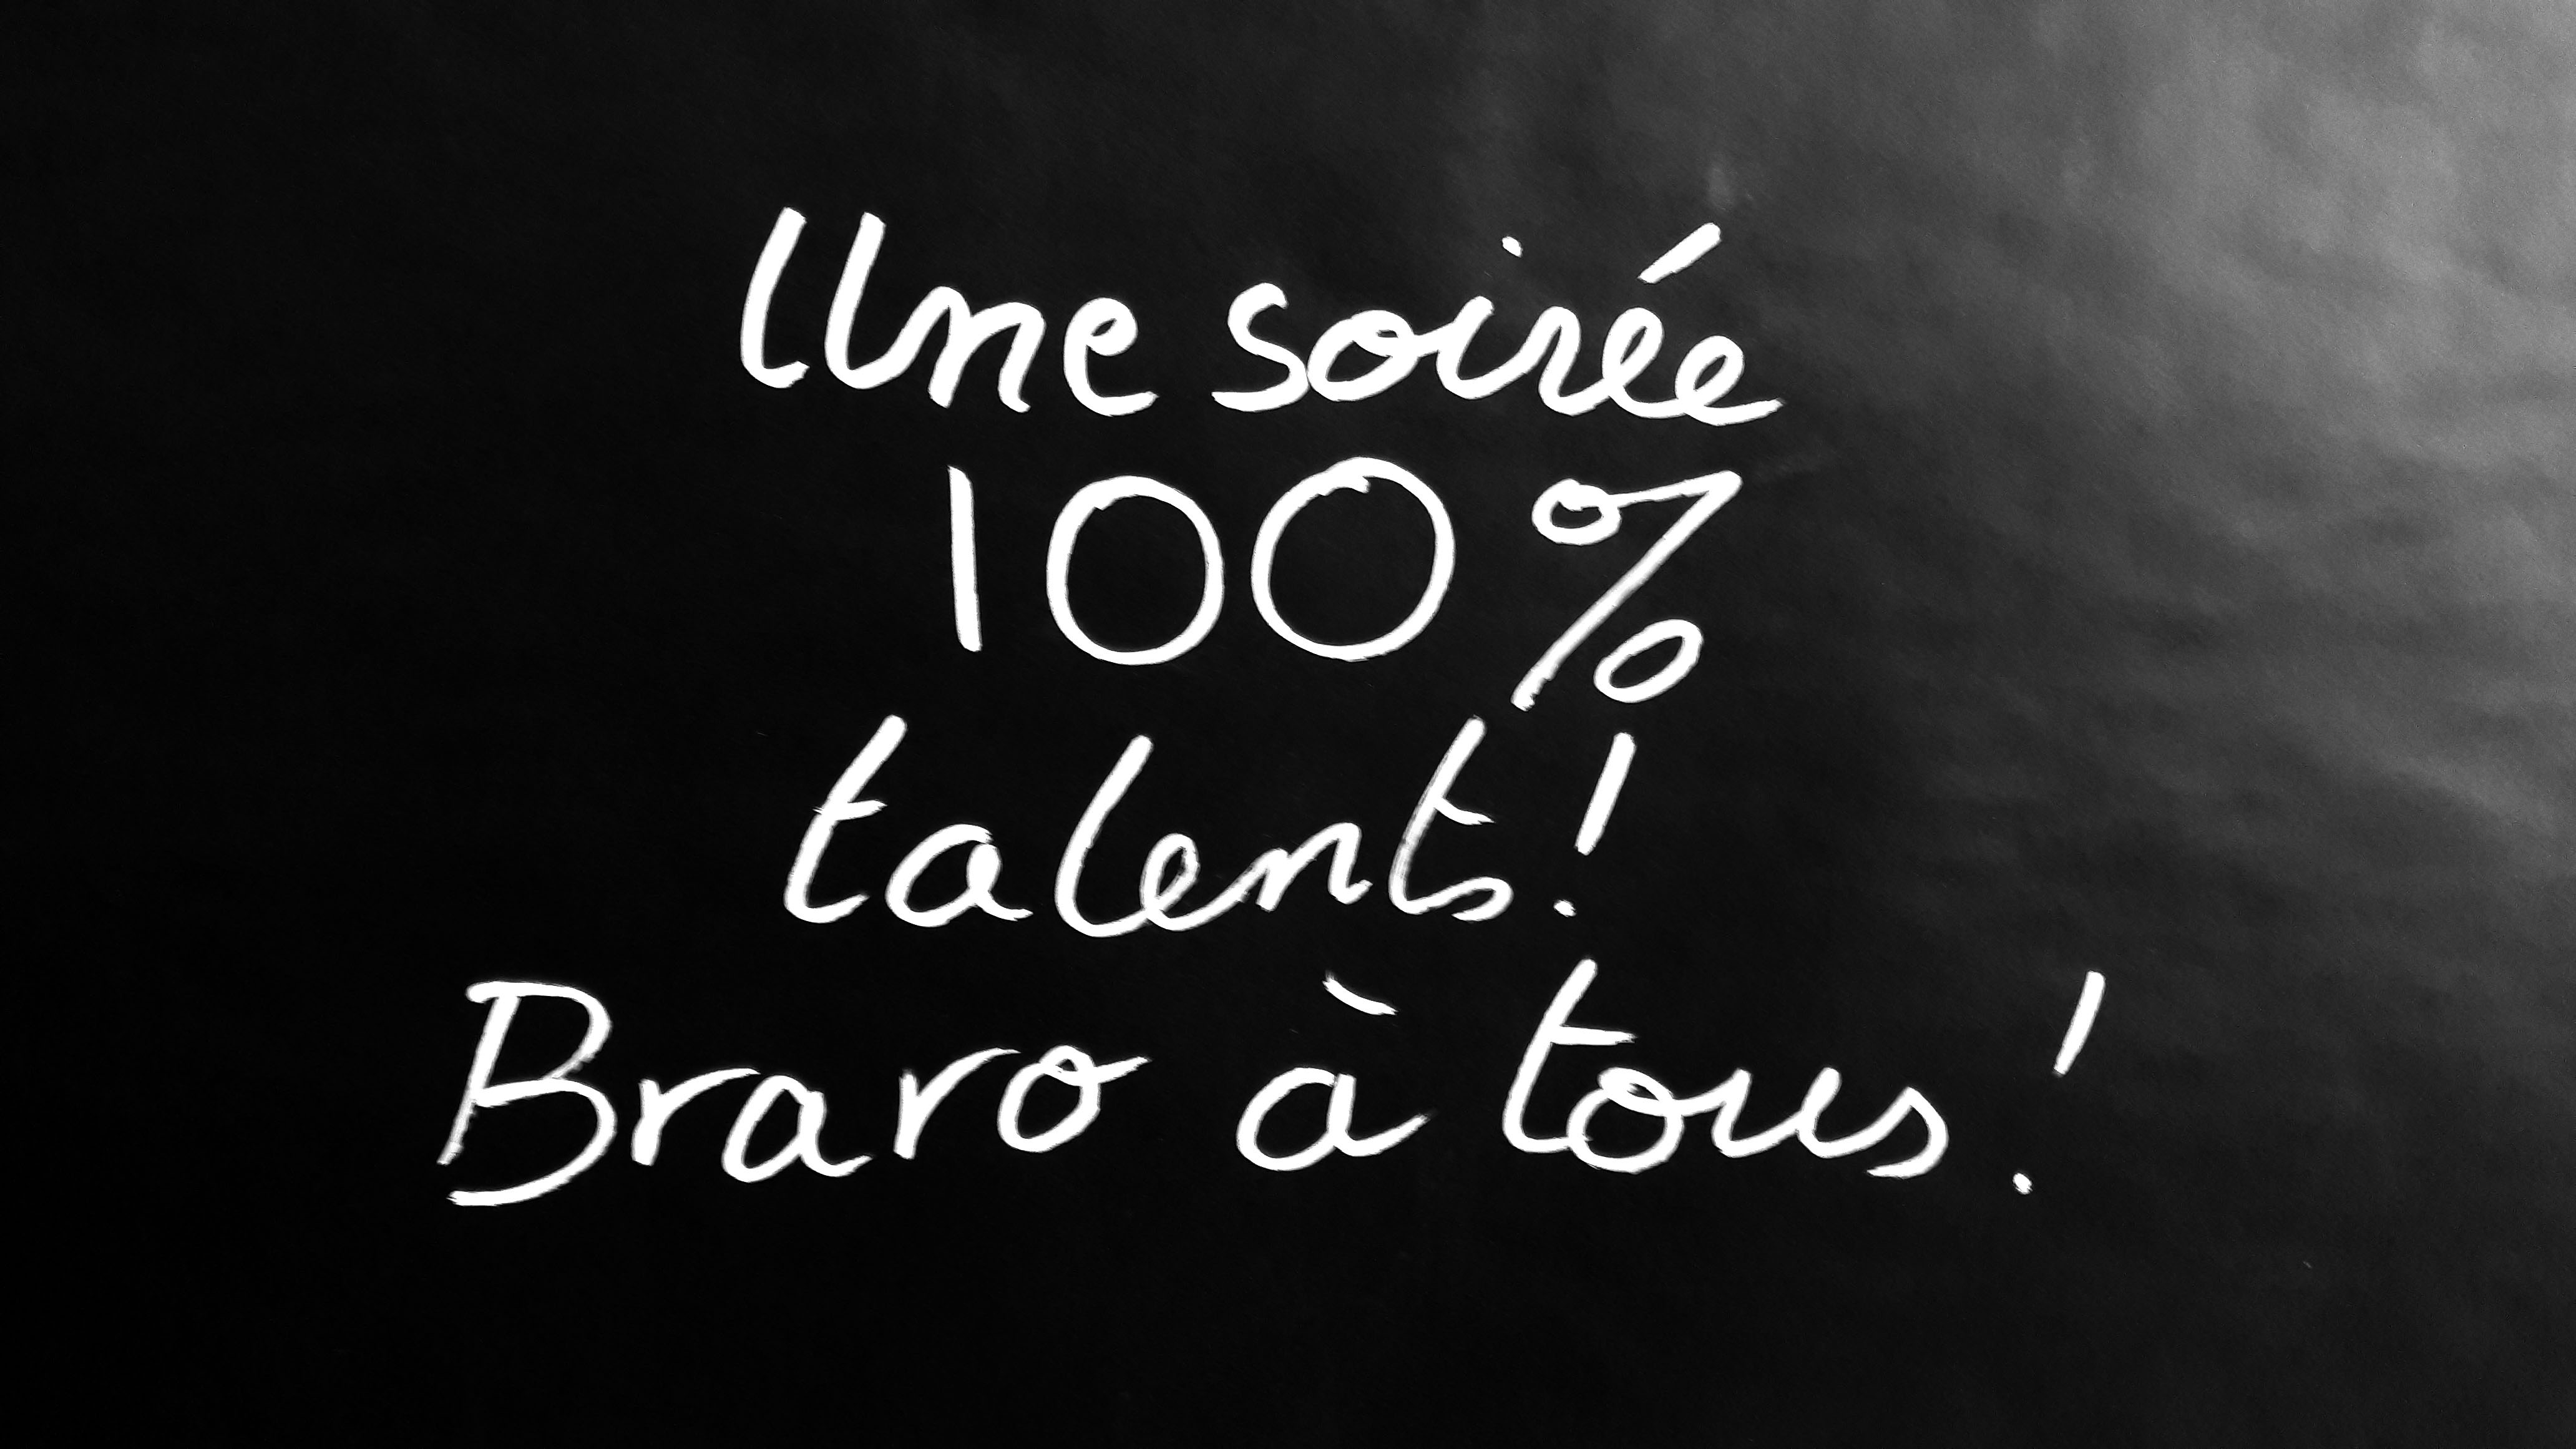 Une soirée
100%
talents!
Bravo à tous!